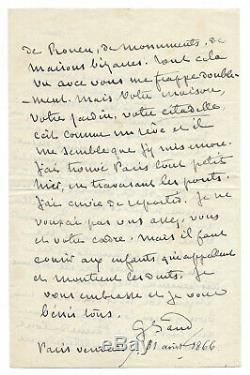 de Rouen, de monuments, de
maisons bizarres. Tout cela
vu avec vous me frappe double-
-ment. Mais votre maison,
votre jardin, votre citadelle
c'est comme un rêve et il
me semble que j'y suis encore.
J'ai trouvé Paris tout petit
hier, en traversant les ponts.
J'ai envie de repartir. Je ne
vous ai pas vus assez, vous
et votre cadre. Mais il faut
courir aux enfants qui appellent
et montrent les dents. Je
vous embrasse et je vous
bénis tous.
G Sand
Paris vendredi 31 août 1866